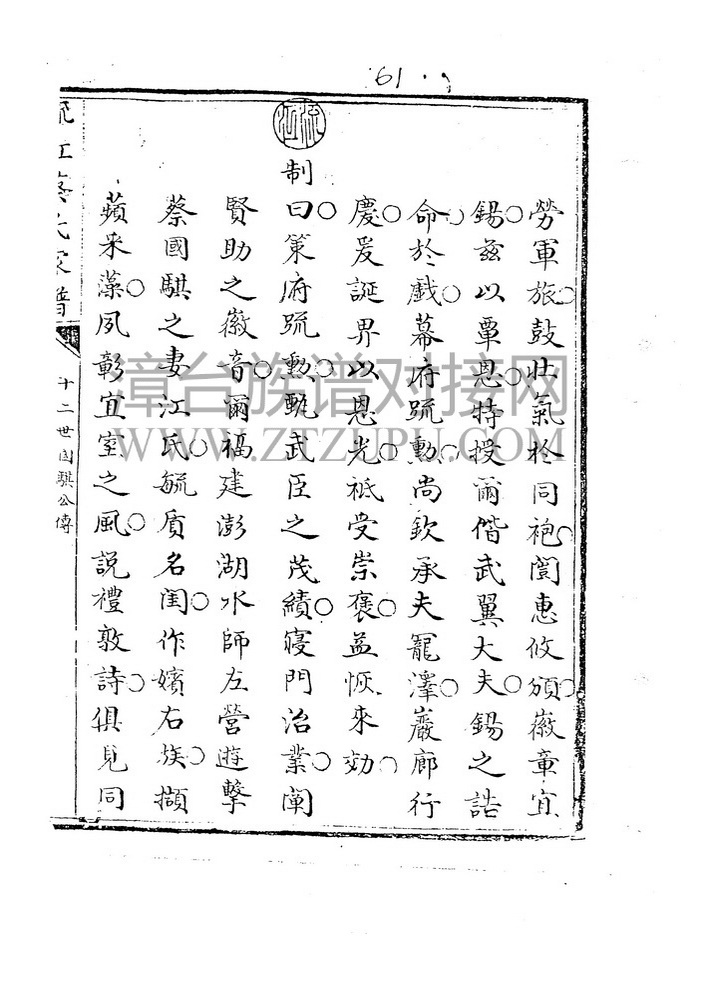 61.
勞軍旅○鼓壯氣於同袍○闓惠攸頒○徽章宜
錫○茲以覃恩○特授爾偕武翼大夫○錫之誥
命○於戲○幕府疏勳○尚欽承夫寵澤○巖廊行
慶○爰誕畀以恩光○祗受崇褒○益恢來効○
制曰○策府疏勳○甄武臣之茂績○寢門治業○闡
賢助之徽音○爾福建澎湖水師左營遊擊
蔡國騏之妻江氏○毓質名閨○作嬪右族○擷
蘋采藻○夙彰宜室之風○說禮敦詩○俱見同
流江蔡氏家譜
十二世國騏公傳
流江
漳台族谱对接网
WWW.ZTZUPU.COM